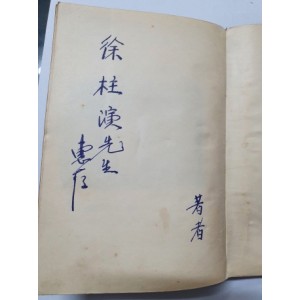 徐柱演先生
惠存
著者